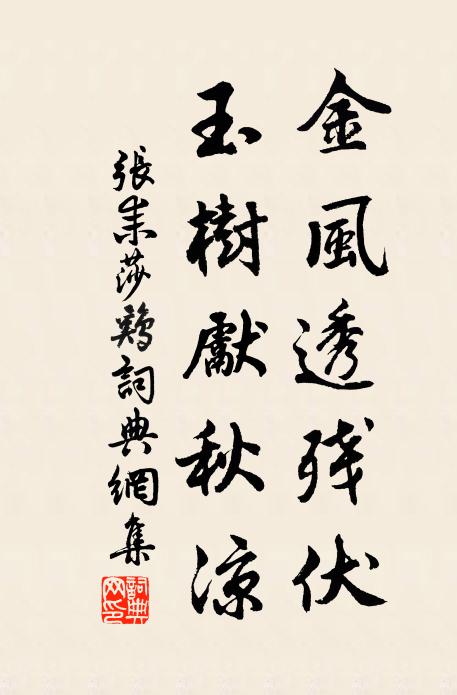 金風透残伏
玉樹獻秋涼
張耒莎鷄詞典網集
詞典网印